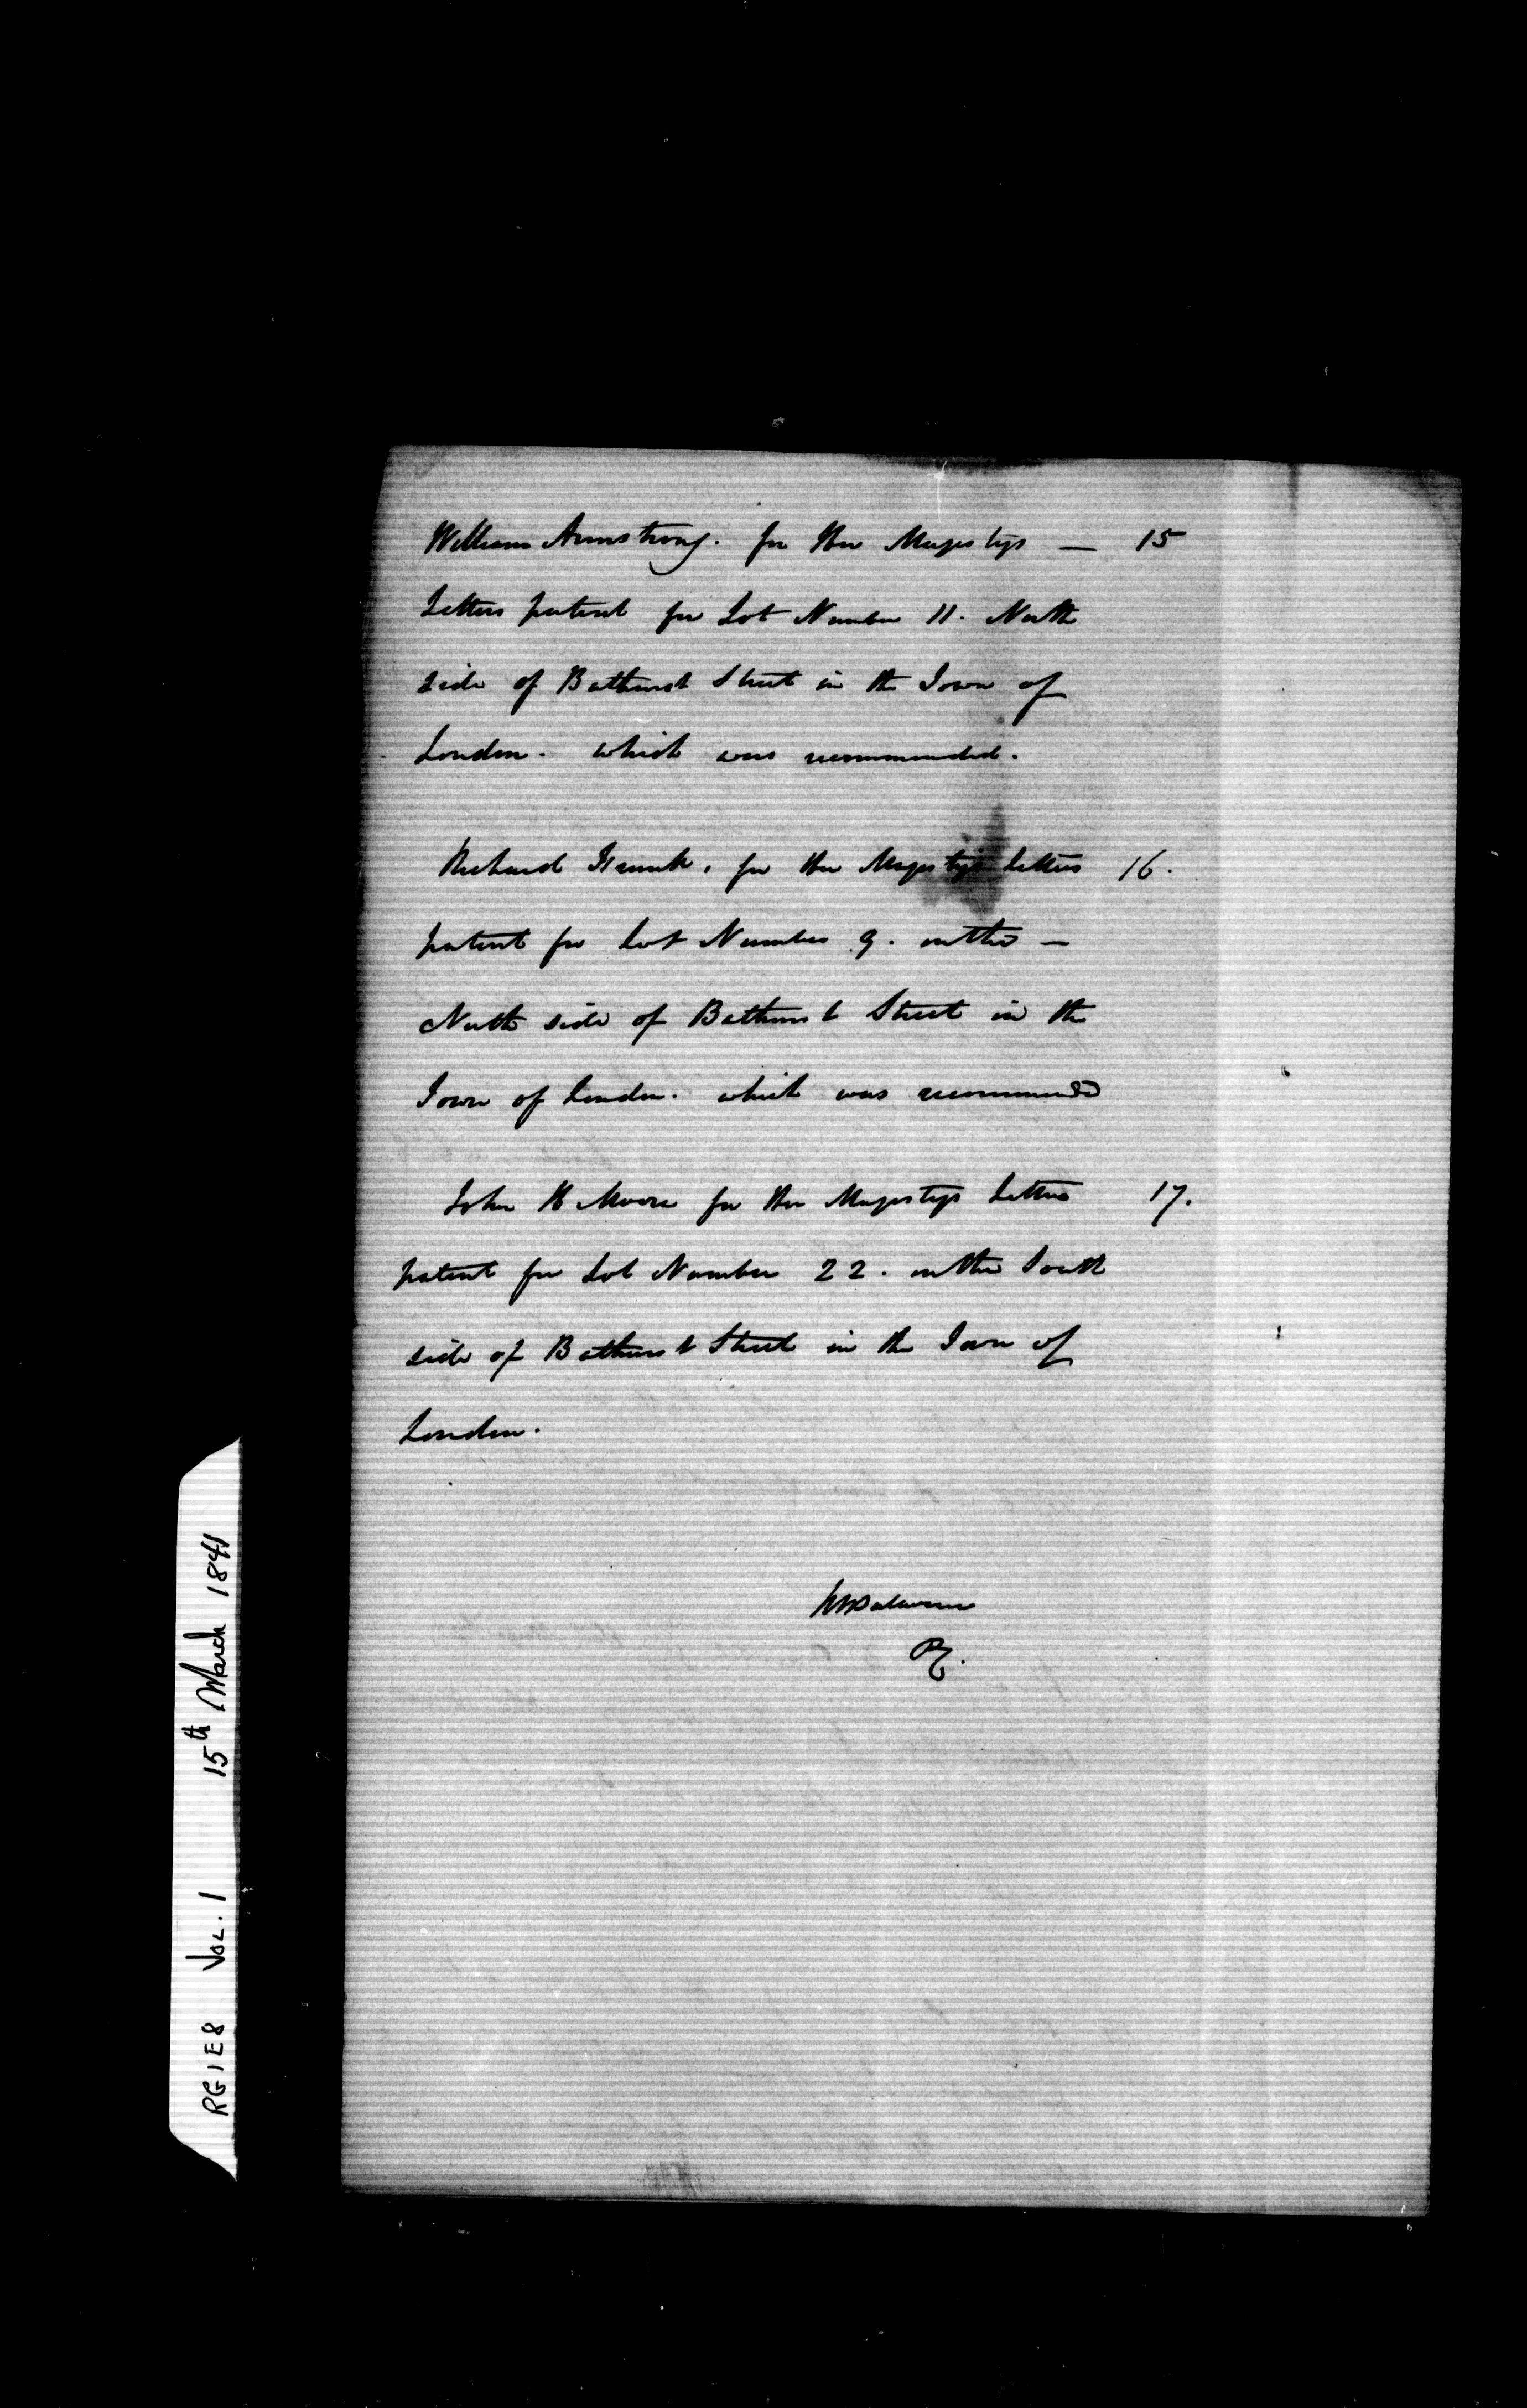 William Armstrong. for Her Majestys — 15
Letters patent for Lot Number 11. North
side of Bathurst Street in the Town of
London. which was recommended.
Richard for Her Majesty's Letters 16.
patent for Lot Number 9. on the —
North side of Bathurst Street in the
Town of London. which was recommended
John H Moore for Her Majestys Letters 17.
patent for Lot Number 22. on the South
side of Bathurst Street in the Town of
London.
RG1E8 VOL. 1 15th March 1841